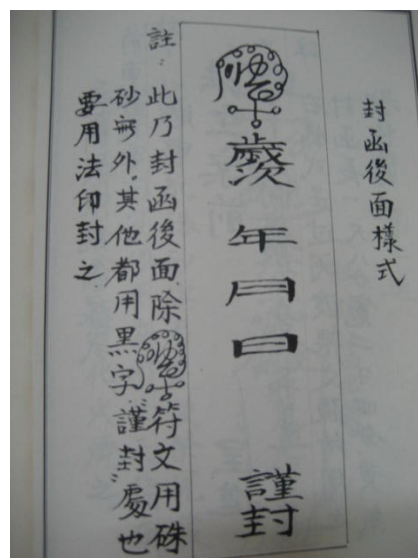 封函後面樣式
歲次 年 月 日 謹封
註：此乃封函後面除 符文用硃
砂字外。其他都用黑字〝謹封〞處也
要用法印封之